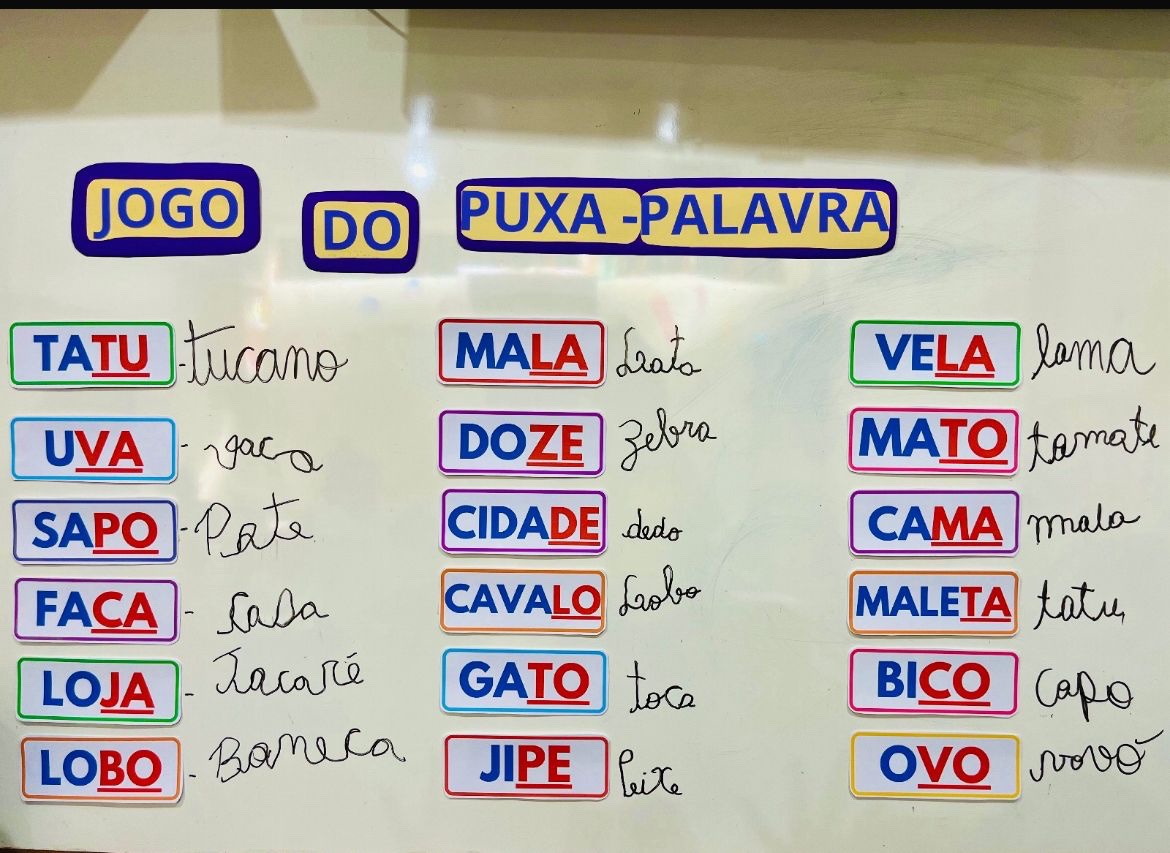 JOGO DO PUXA -PALAVRA
TATU -tucano
UVA - vaca
SAPO - Pote
FACA - casa
LOJA - Jacaré
LOBO - Boneca
MALA Lata
DOZE zebra
CIDADE dedo
CAVALO Lobo
GATO toca
JIPE peixe
VELA lama
MATO tomate
CAMA mala
MALETA tatu
BICO copo
OVO vovó